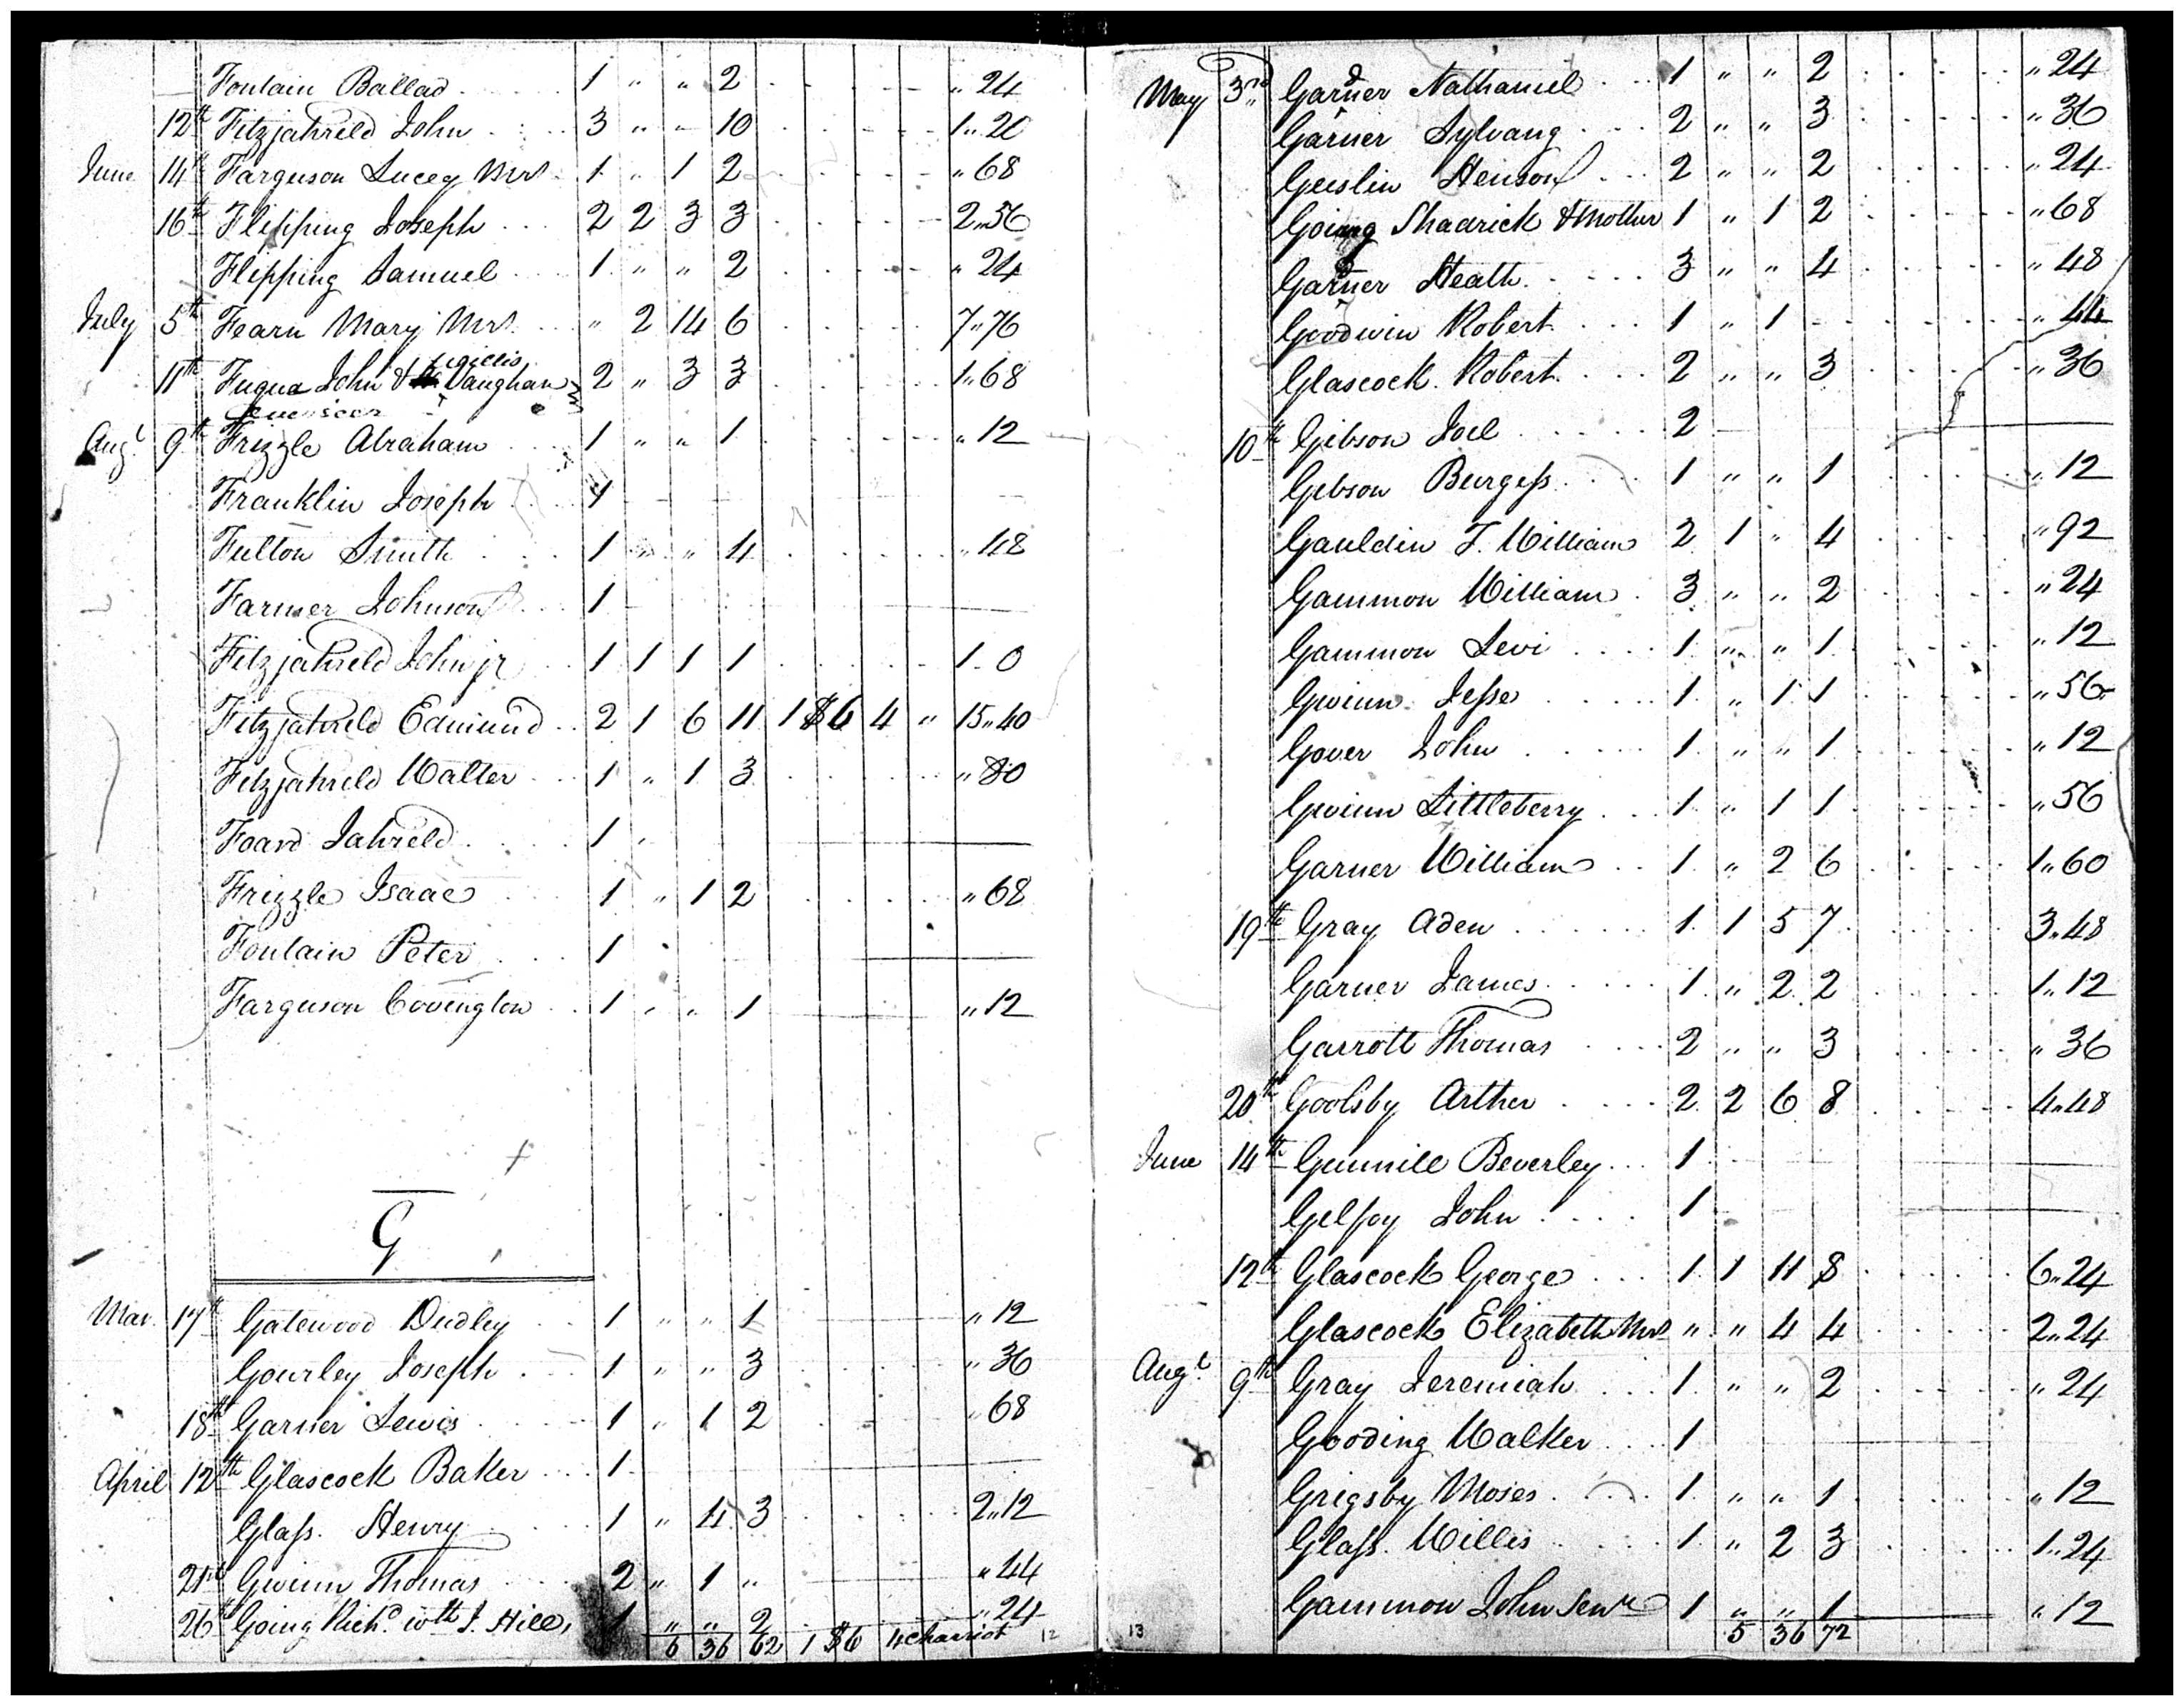 Fontain Ballad 1 " " 2 " 24
12th Fitzjahreld John 3 " " 10 1" 20
June 14th Farguson Lucey Mrs 1 " 1 2 " 68
16th Flipping Joseph 2 2 3 3 2"56
Flipping Samuel 1 " " 2 " 24
July 5th Fearn Mary Mrs " 2 14 6 7"76
Willis
11th Fuqua John & Vaughan 2 " 3 3 1"68
overseer
Augt 9th Frizzle Abraham 1 " " 1 " 12
Franklin Joseph 1
Fulton Smith 1 " " 4 " 48
Farmer Johnson 1
Fitzjahreld John jr 1 1 1 1 1 " 0
Fitzjahreld Edmund 2 1 6 11 1 $6 4 " 15"40
Fitzjahreld Walter 1 " 1 3 " 80
Foard Jahreld 1
Frizzle Isaac 1 " 1 2 " 68
Fontain Peter 1
Farguson Covington 1 " " 1 " 12
G
Mar. 17th Gatewood Dudley 1 " " 1 " 12
Gourley Joseph 1 " " 3 " 36
18th Garner Lewis 1 " 1 2 " 68
April 12th Glascock Baker 1
Glass Henry 1 " 4 3 2"12
21st Gwinn Thomas 2 " 1 " " 44
26th Going Richd. wth J. Hill, 1 " " 2 " 24
6 36 62 1 $6 4 charriot 12
May 3rd Garner Nathaniel 1 " " 2 " 24
Garner Sylvang 2 " " 3 " 36
Geeslin Henson 2 " " 2 " 24
Going Shadrick & Mother 1 " 1 2 " 68
Garner Heath 3 " " 4 " 48
Goodwin Robert 1 " 1 " 44
Glascock Robert 2 " " 3 " 36
10th Gibson Joel 2
Gibson Burgess 1 " " 1 " 12
Gauldin J. William 2 1 " 4 " 92
Gammon William 3 " " 2 " 24
Gammon Levi 1 " " 1 " 12
Gwinn Jesse 1 " 1 1 " 56
Gover John 1 " " 1 " 12
Gwinn Littleberry 1 " 1 1 " 56
Garner William 1 " 2 6 1"60
19th Gray Aden 1 1 5 7 3"48
Garner James 1 " 2 2 1"12
Garrott Thomas 2 " " 3 " 36
20th Goolsby Arther 2 2 6 8 4"48
June 14th Gunnill Beverley 1
Gilfoy John 1
12th Glascock George 1 1 11 8 6"24
Glascock Elizabeth Mrs " " 4 4 2"24
Augt. 9th Gray Jeremiah 1 " " 2 " 24
Gooding Walker 1
Grigsby Moses 1 " " 1 " 12
Glass Willis 1 " 2 3 1"24
Gammon John Senr 1 " " 1 " 12
13 5 36 72